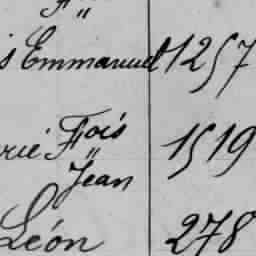 s Emmanuel 1257
rie Fois 1519
" Jean
Léon 278